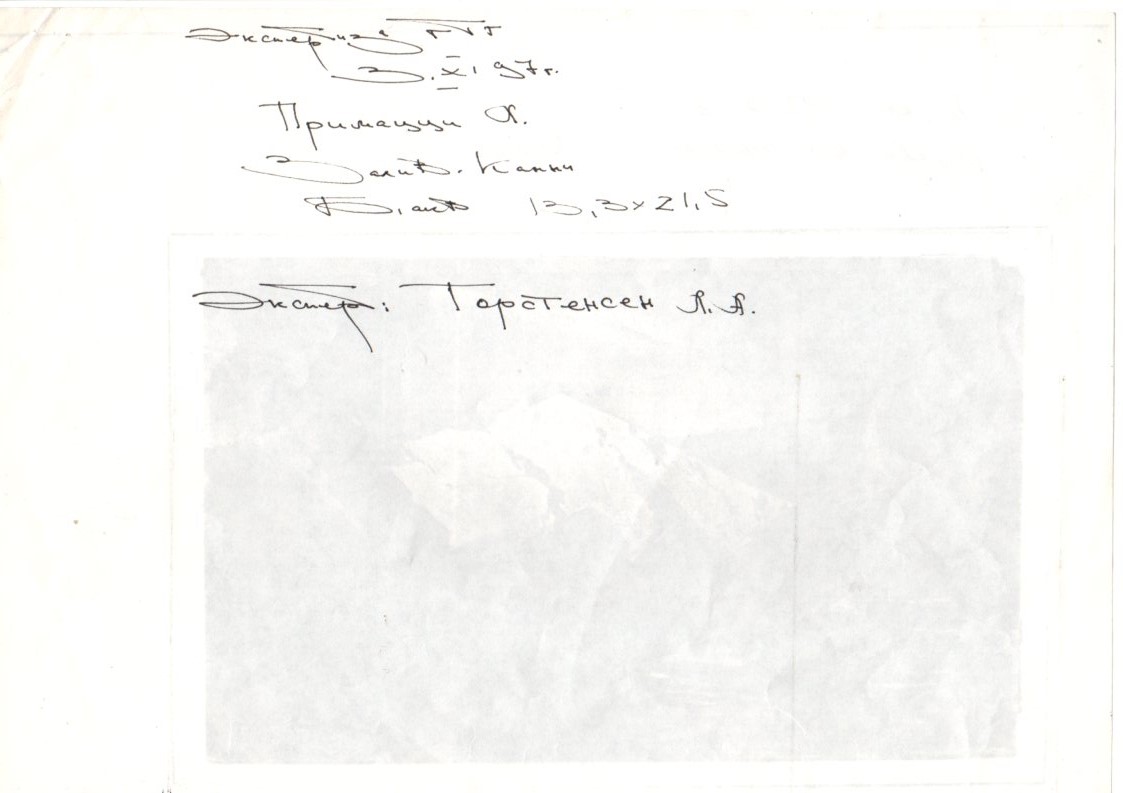 Экспертиза ГТГ
3.XI 97г.
Примацци А.
Залив. Канны
Б., акв 13,3х21,5
Экспер: Торстенсен Л.А.